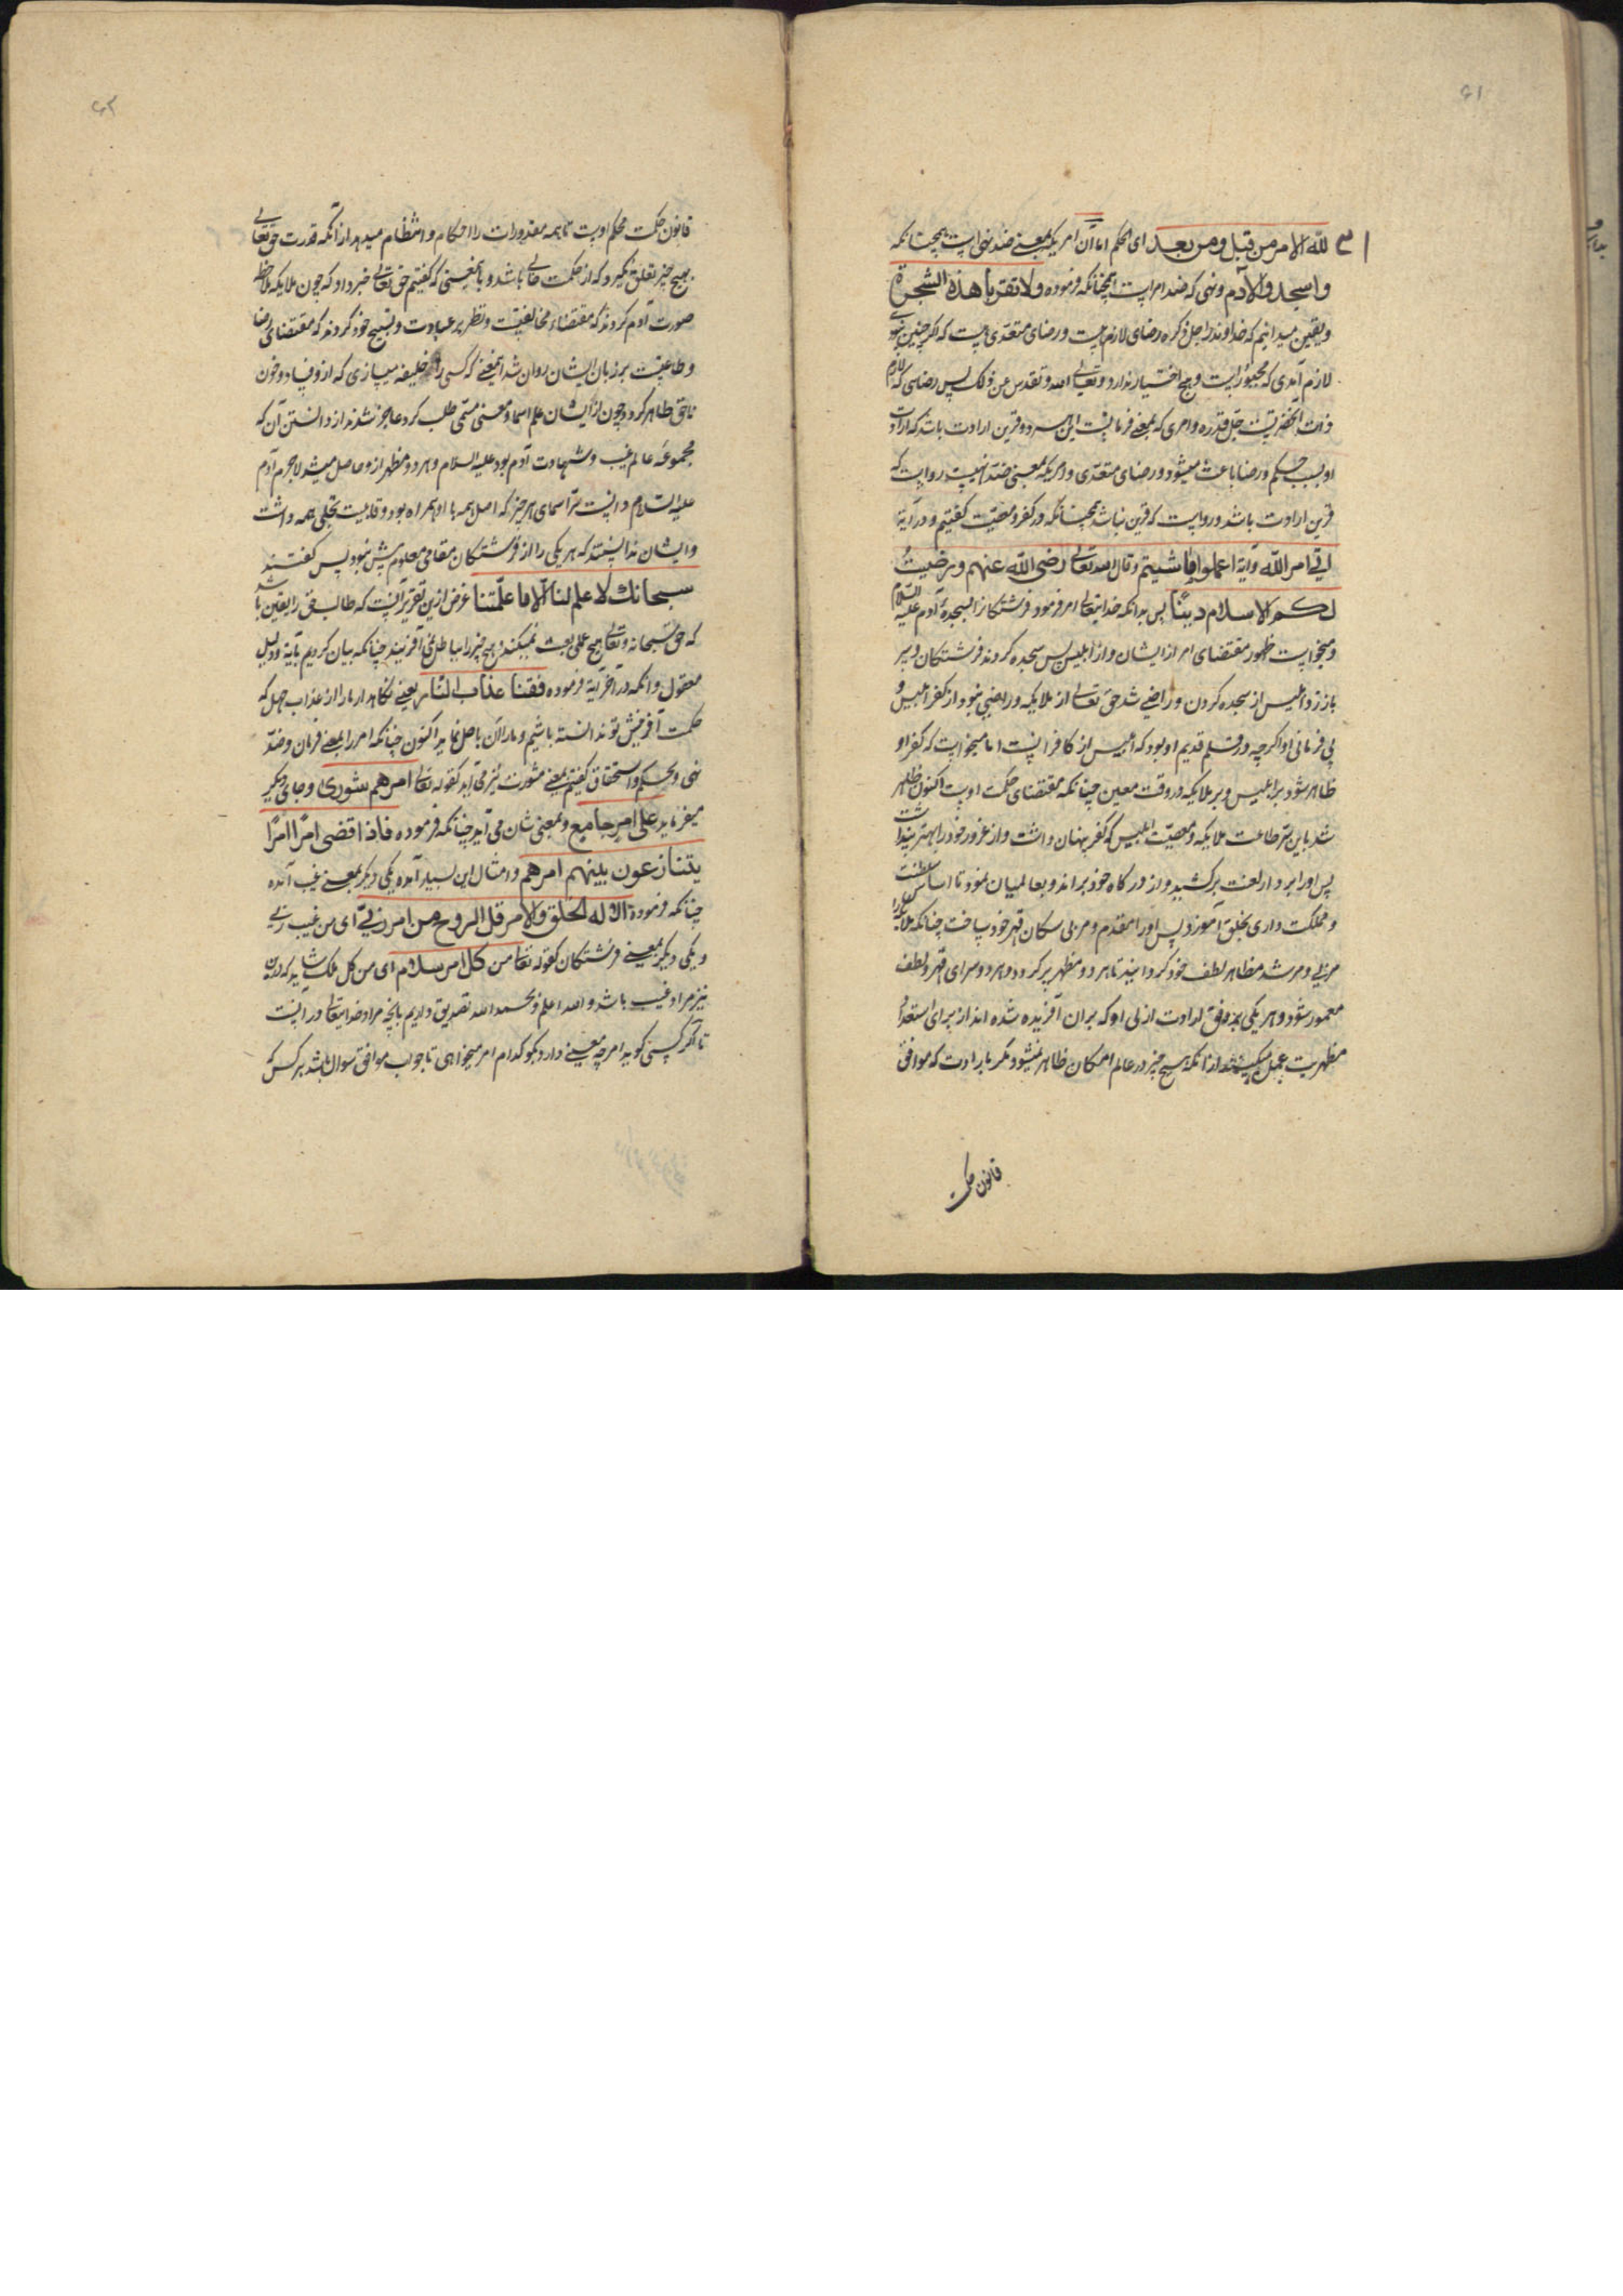 ۶۱
لله الامر من قبل و من بعد ای الحکم اما آن امر یکه بمعنی ضد نهی است همچنانکه
واسجدوا لآدم ونهی که ضد امر است همچنانکه فرموده ولا تقربا هذه الشجرة
ویقین میدانیم که خداوند را جل ذکره رضای لازم هست و رضای متعدی هست که اگر چنین نبودی
لازم آمدی که مجبور است وهیچ اختیار ندارد و تعالی الله و تقدس عن ذلک پس رضایی که لازم
ذات آنحضرتست جل قدره و امری که بمعنی فرمانست این هر دو قرین ارادت باشد که ارادت
او بسبب حکم و رضا باعث میشود و رضای متعدی و امریکه بمعنی ضد نهیست رواست که
قرین ارادت باشد و رواست که قرین نباشد همچنانکه در کفر و معصیت گفتیم و در آیة
اتی امر الله و آیة اعملوا ما شئتم وقال الله تعالی رضی الله عنهم و رضیت
لکم الاسلام دینا پس بدانکه خدایتعالی امر فرمود فرشتگانرا بسجدهٔ آدم علیه السلام
ومیخواست ظهور مقتضای امر از ایشان و از ابلیس پس سجده کردند فرشتگان و سر
باز زد ابلیس از سجده کردن و راضی شد حق تعالی از ملایکه و راضی نبود از کفر ابلیس و
بی فرمانی او اگرچه در قلم قدیم او بود که ابلیس از کافرانست اما میخواست که کفر او
ظاهر شود بر ابلیس و بر ملایکه در وقت معین چنانکه مقتضای حکمت اوست اکنون ظاهر
شد باین سر طاعت ملایکه و معصیت ابلیس که کفر پنهان داشت و از غرور خود را بهتر پنداشت
پس او را بر دار لعنت برکشید و از درگاه خود براند و بعالمیان نمود تا اساس سلطنت
و مملکت داری بخلق آموزد پس او را مقدم و مربی سکان قهر خود ساخت چنانکه ملایکه را
مربی و مرشد مظاهر لطف خود گردانید تا هر دو مظهر پر گردد و هر دو سرای قهر و لطف
معمور شود و هر یکی بر وفق ارادت ازلی او که بران آفریده شده اند از برای استعداد
مظهریت عمل میکنند از انکه هیچ چیز در عالم امکان ظاهر نمیشود مگر بارادت که موافق
قانون حکمت
۶۲
قانون حکمت محکم اوست تا همه مقدورات را احکام و انتظام میدهد از آنکه قدرت حق تعالی
بهیچ چیز تعلق نگیرد که از حکمت خالی باشد و باین معنی که گفتیم حق تعالی خبر داد که چون ملایکه ملاحظه
صورت آدم کردند که مقتضاء مخالفتست و نظر بر عبادت و تسبیح خود کردند که مقتضای رضا
و طاعتست بر زبان ایشان روان شد آیعنی که کسی را خلیفه میسازی که ازو فساد و خون
ناحق ظاهر گردد و چون از ایشان علم اسما و معنی مسمی طلب کرد عاجز شدند از دانستن آن که
مجموعهٔ عالم غیب و شهادت آدم بود علیه السلام و هر دو مظهر ازو حاصل میشد لاجرم آدم
علیه السلام دانست سر اسمای هر چیز که اصل همه با او همراه بود و قابلیت تجلی همه داشت
و ایشان ندانستند که هر یکی را از فرشتگان مقامی معلوم بیش نبود پس گفتند
سبحانك لا علم لنا الا ما علمتنا غرض ازین تقریر آنست که طالب حق را یقین باشد
که حق سبحانه و تعالی هیچ عملی بعبث نمیکند و هیچ چیز را بباطل نمی آفریند چنانکه بیان کردیم بآیة و دلیل
معقول و آنکه در آخر آیة فرموده فقنا عذاب النار یعنی نگاهدار ما را از عذاب جهل که
حکمت آفرینش تو ندانسته باشیم و ما را آن باصل نماید اکنون چنانکه امر را بمعنی فرمان و ضد
نهی و بحکم و استحقاق گفتیم بمعنی مشورت نیز می آید کقوله تعالی امرهم شوری و جای دیگر
میفرماید علی امر جامع و بمعنی شان می آید چنانکه فرموده فاذا قضی امرا امرا
یتنازعون بینهم امرهم و امثال این بسیار آمده یکی دیگر بمعنی غیب آمده
چنانکه فرموده الا له الخلق والامر قل الروح من امر ربی ای من غیب ربی
و یکی دیگر بمعنی فرشتگان کقوله تعالی من کل امر سلام ای من کل ملک شاید که درین
نیز مراد غیب باشد والله اعلم وبحمد الله تصدیق داریم بآنچه مراد خدایتعالی در آنست
تا اگر کسی گوید امر چه معنی دارد بگو کدام امر میخواهی تا جواب موافق سوال باشد هر کس که